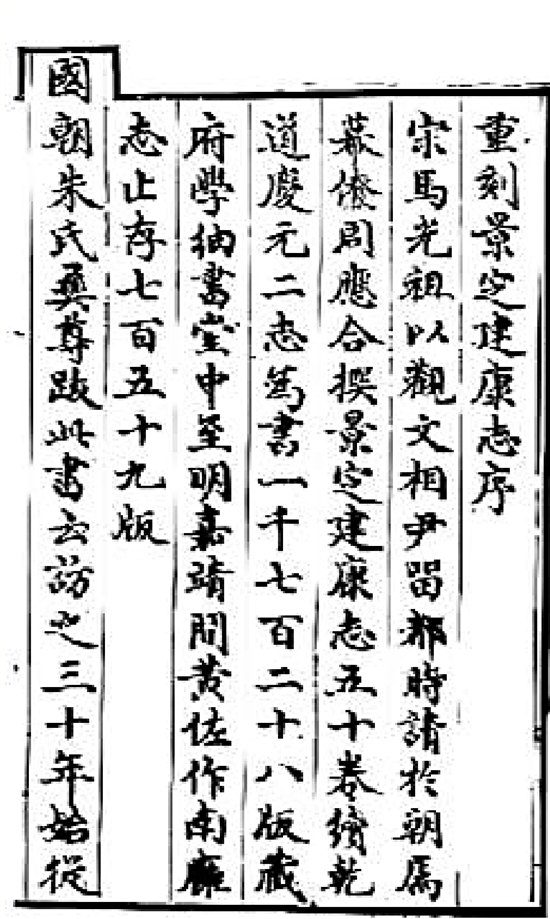 重刻景定建康志序
宋馬光祖以觀文相尹留都時請於朝屬
幕僚周應合撰景定建康志五十卷續乾
道慶元二志為書一千七百二十八版藏
府學紬書堂中至明嘉靖間黃佐作南廱
志止存七百五十九版
國朝朱氏彝尊跋此書云訪之三十年始從